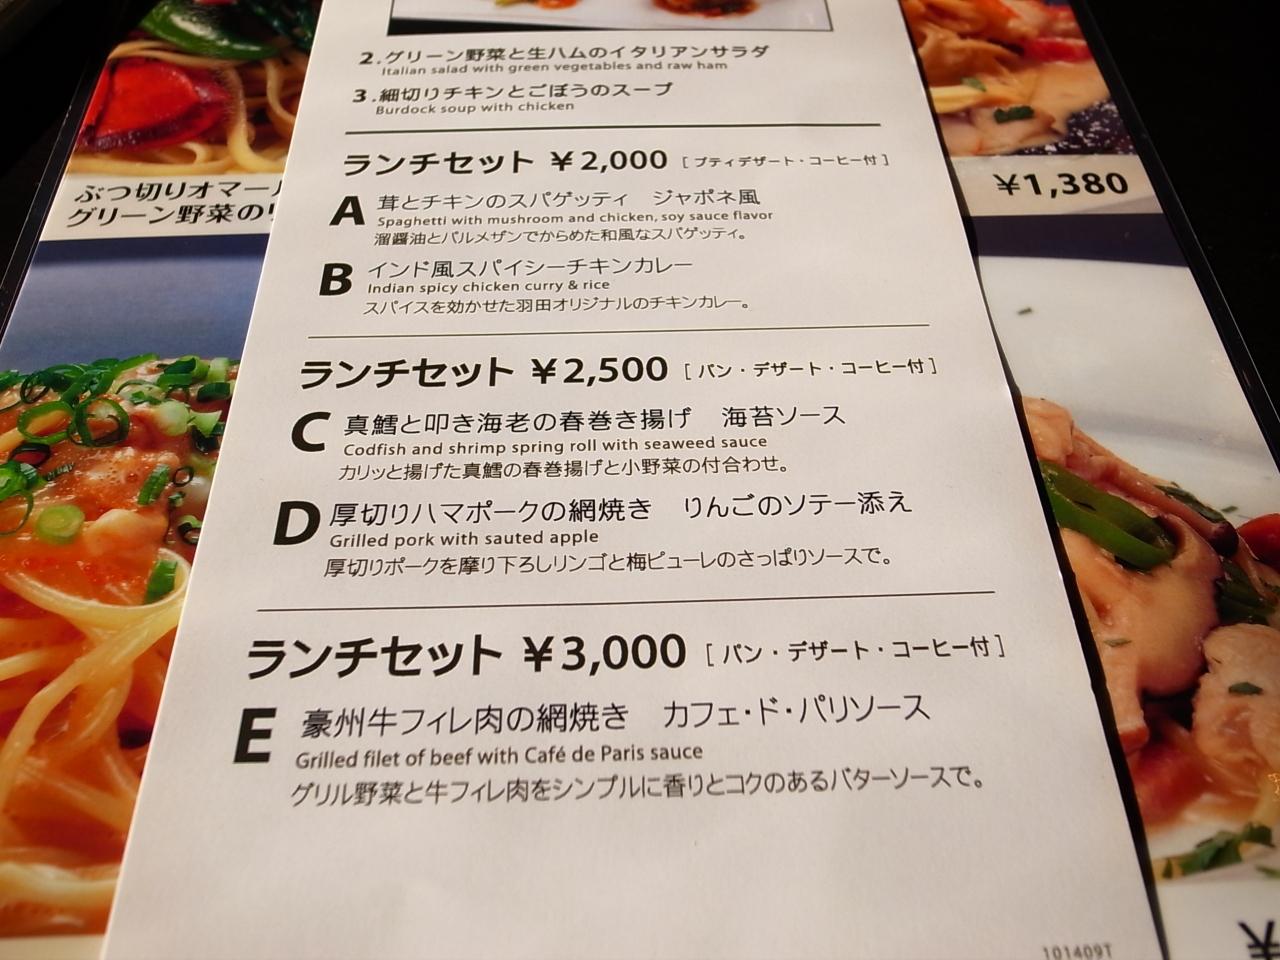 2.グリーン野菜と生ハムのイタリアンサラダ
Italian salad with green vegetables and raw ham
3.細切りチキンとごぼうのスープ
Burdock soup with chicken
ランチセット ¥2,000 [ プティデザート・コーヒー付 ]
A 茸とチキンのスパゲッティ ジャポネ風
Spaghetti with mushroom and chicken, soy sauce flavor
溜醤油とパルメザンでからめた和風なスパゲッティ。
B インド風スパイシーチキンカレー
Indian spicy chicken curry & rice
スパイスを効かせた羽田オリジナルのチキンカレー。
ランチセット ¥2,500 [ パン・デザート・コーヒー付 ]
C 真鱈と叩き海老の春巻き揚げ 海苔ソース
Codfish and shrimp spring roll with seaweed sauce
カリッと揚げた真鱈の春巻揚げと小野菜の付合わせ。
D 厚切りハマポークの網焼き りんごのソテー添え
Grilled pork with sauted apple
厚切りポークを摩り下ろしリンゴと梅ピューレのさっぱりソースで。
ランチセット ¥3,000 [ パン・デザート・コーヒー付 ]
E 豪州牛フィレ肉の網焼き カフェ・ド・パリソース
Grilled filet of beef with Café de Paris sauce
グリル野菜と牛フィレ肉をシンプルに香りとコクのあるバターソースで。
101409T
ぶつ切りオマー
グリーン野菜の
¥1,380
¥